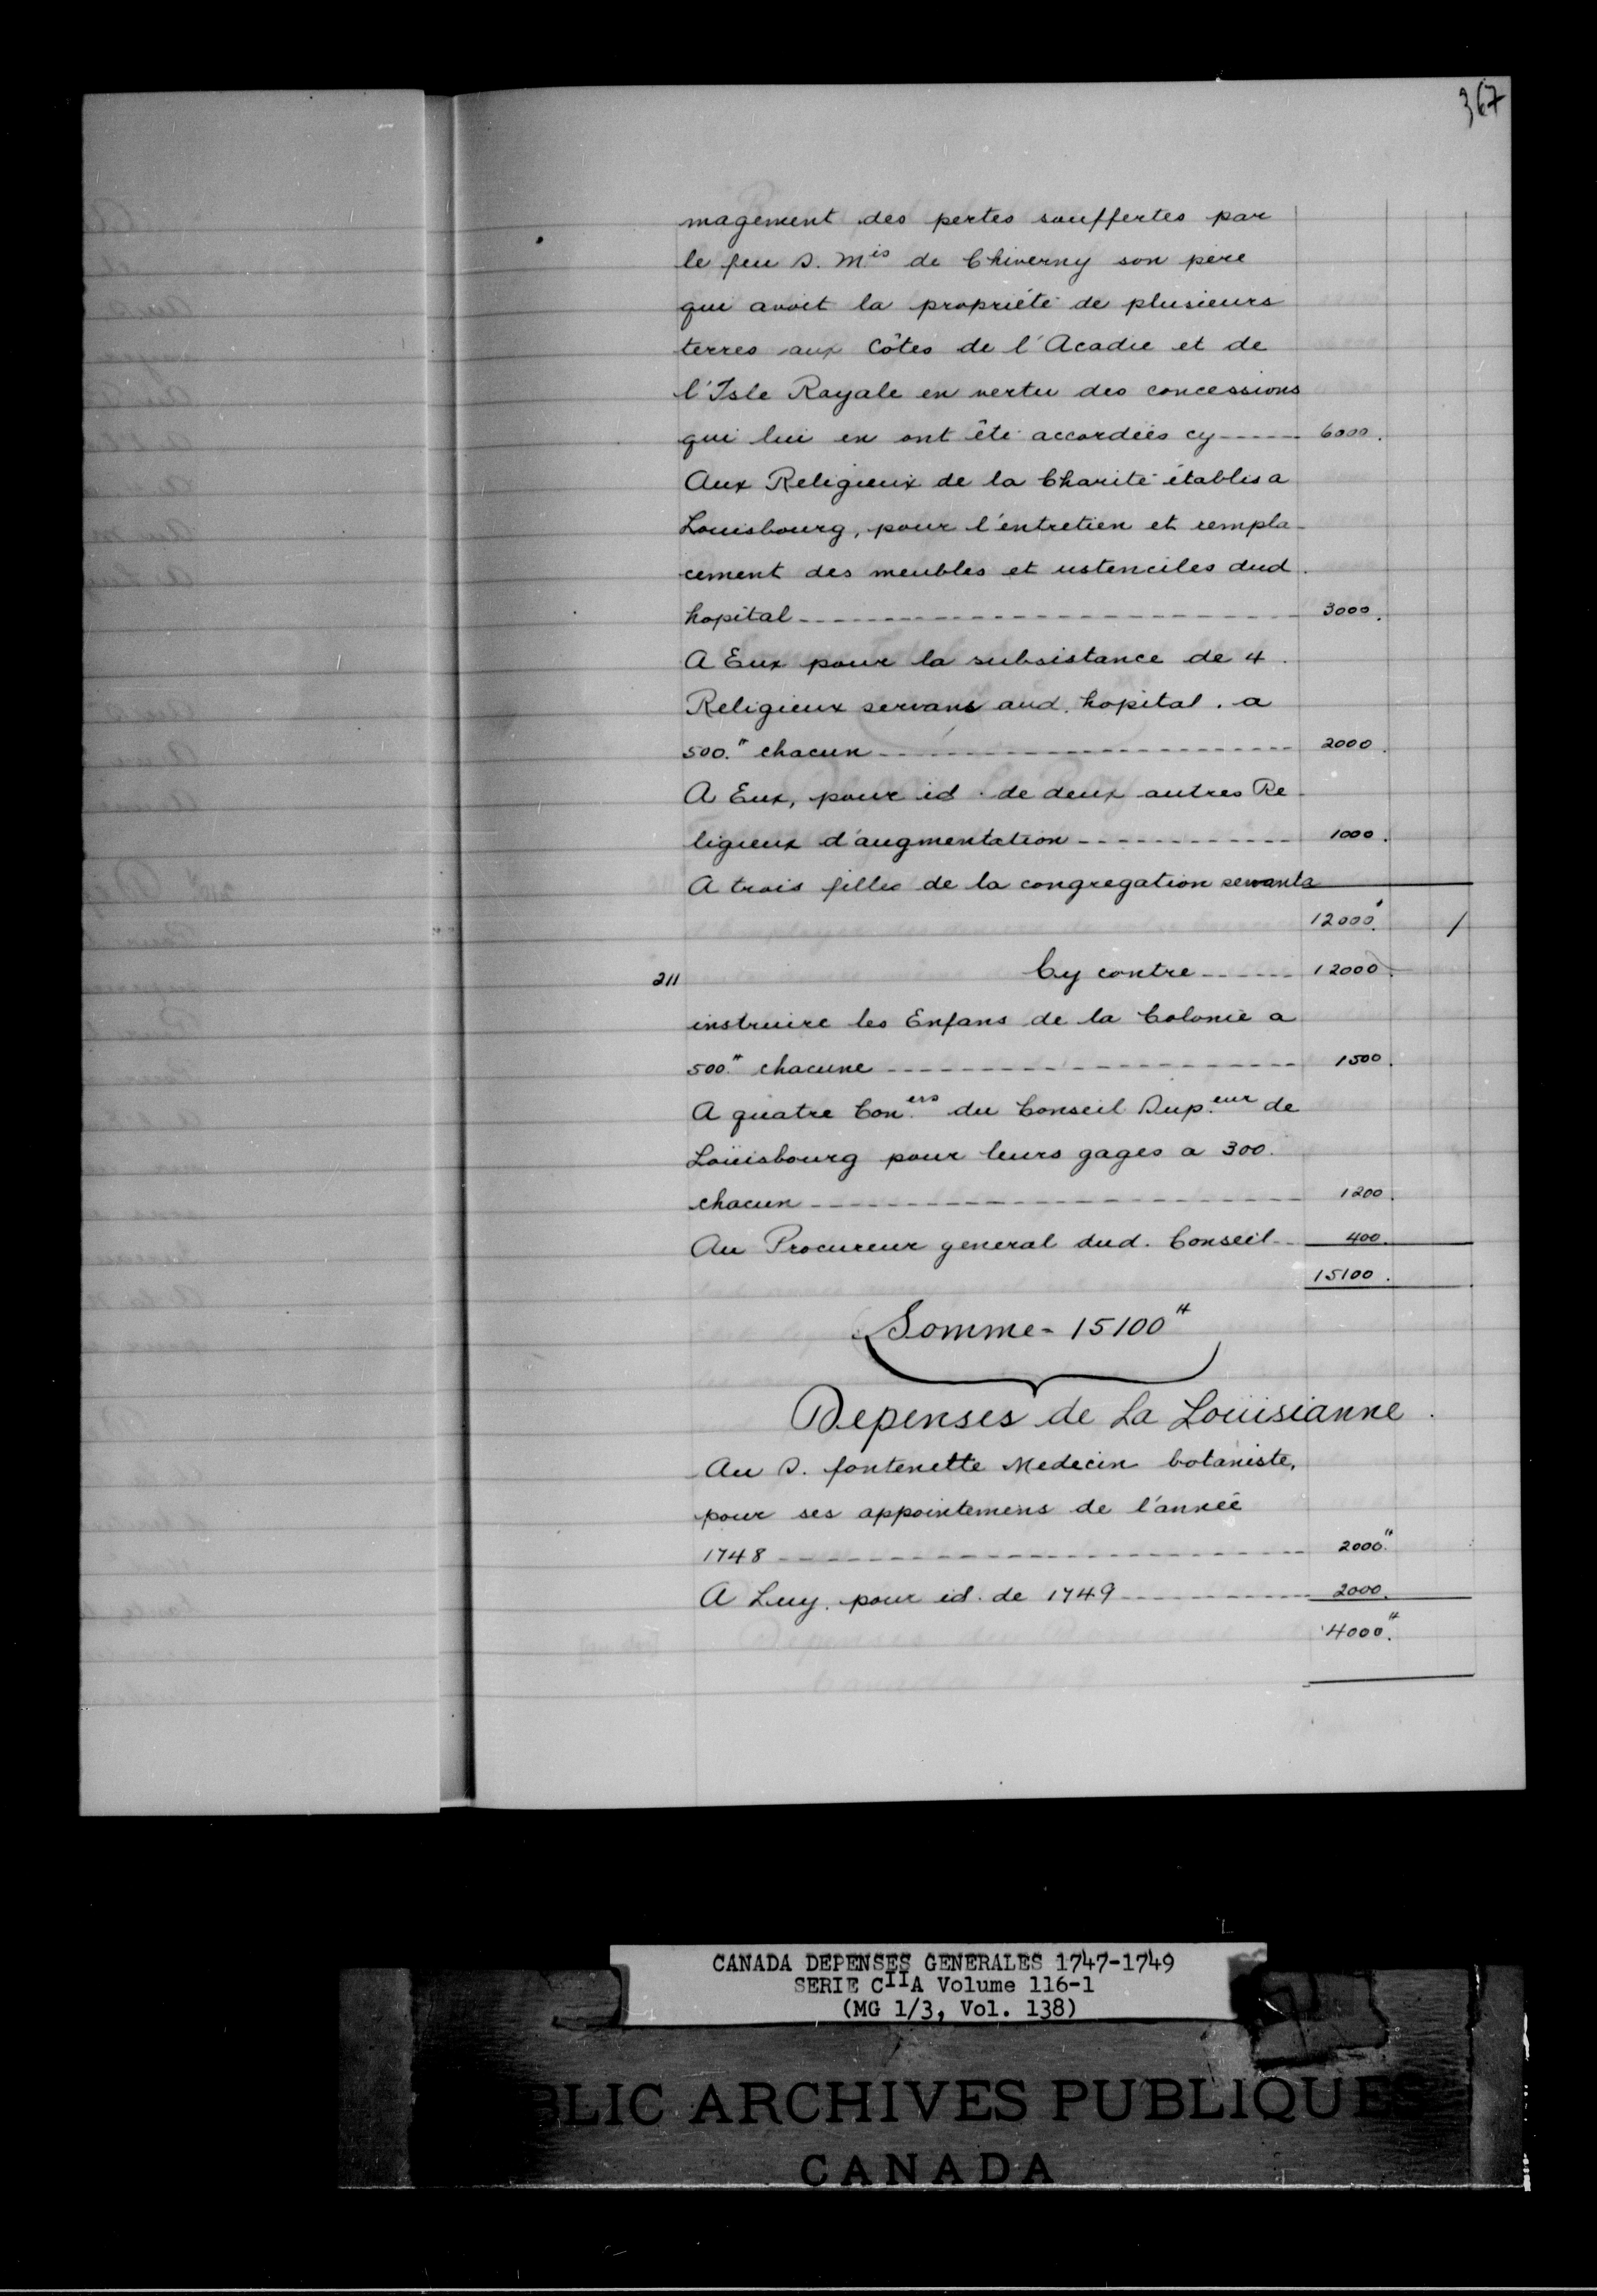 367
magement des pertes souffertes par
le feu S. Mis de Chiverny son pere
qui avoit la propriété de plusieurs
terres aux Côtes de l'Acadie et de
l'Isle Royale en vertu des concessions
qui lui en ont été accordées cy ------ 6000.
Aux Religieux de la Charité établis a
Louisbourg, pour l'entretien et rempla-
cement des meubles et ustenciles dud.
hopital ------ 3000.
A Eux pour la subsistance de 4
Religieux servans aud. hopital. a
500.# chacun ------ 2000.
A Eux, pour id. de deux autres Re-
ligieux d'augmentation ------ 1000.
A trois filles de la congregation servants
12000.
211 Cy contre ------ 12000.
instruire les Enfans de la Colonie a
500.# chacune ------ 1500.
A quatre Con.ers du Conseil Sup.eur de
Loüisbourg pour leurs gages a 300.
chacun ------ 1200.
Au Procureur general dud. Conseil -- 400.
15100.
Somme - 15100#
Depenses de La Loüisianne.
Au S. fontenette Medecin botaniste,
pour ses appointemens de l'année
1748 ------ 2000.#
A Luy. pour id. de 1749 ------ 2000.
4000.#
CANADA DEPENSES GENERALES 1747-1749
SERIE CIIA Volume 116-1
(MG 1/3, Vol. 138)
BLIC ARCHIVES PUBLIQUES
CANADA